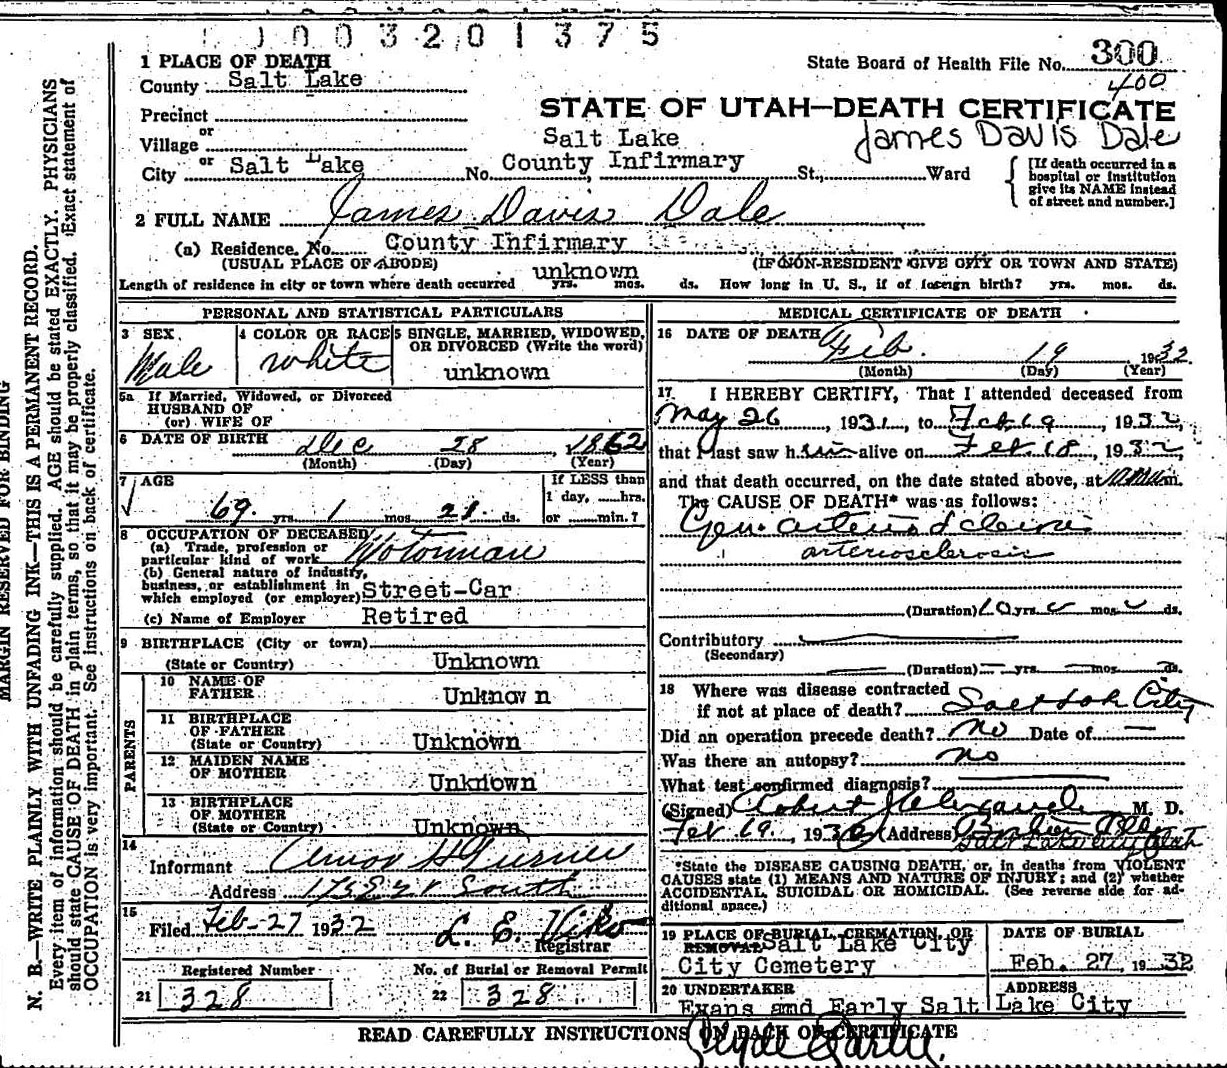 1003201375
1 PLACE OF DEATH
State Board of Health File No. 300
County Salt Lake
400
STATE OF UTAH—DEATH CERTIFICATE
Precinct
or
Village
Salt Lake
James Davis Dale
City or Salt Lake No. County Infirmary St., Ward
[If death occurred in a
hospital or institution
give its NAME instead
of street and number.]
2 FULL NAME James Davis Dale
(a) Residence, No. County Infirmary
(USUAL PLACE OF ABODE) (IF NON-RESIDENT GIVE CITY OR TOWN AND STATE)
unknown
Length of residence in city or town where death occurred yrs. mos. ds. How long in U. S., if of foreign birth? yrs. mos. ds.
PERSONAL AND STATISTICAL PARTICULARS
3 SEX
Male
4 COLOR OR RACE
White
5 SINGLE, MARRIED, WIDOWED,
OR DIVORCED (Write the word)
unknown
5a If Married, Widowed, or Divorced
HUSBAND OF
(or) WIFE OF
6 DATE OF BIRTH Dec 28, 1862
(Month) (Day) (Year)
7 AGE
69 yrs. 1 mos. 21 ds.
If LESS than
1 day, hrs.
or min.?
8 OCCUPATION OF DECEASED
(a) Trade, profession or
particular kind of work Motorman
(b) General nature of industry,
business, or establishment in
which employed (or employer) Street-Car
(c) Name of Employer Retired
9 BIRTHPLACE (City or town)
(State or Country) Unknown
PARENTS
10 NAME OF
FATHER Unknow n
11 BIRTHPLACE
OF FATHER
(State or Country) Unknown
12 MAIDEN NAME
OF MOTHER Unknown
13 BIRTHPLACE
OF MOTHER
(State or Country) Unknown
14
Informant
Address South
15
Filed Feb-27 1932 L. E.
Registrar
Registered Number
21 328
No. of Burial or Removal Permit
22 328
MEDICAL CERTIFICATE OF DEATH
16 DATE OF DEATH
Feb. 19 1932
(Month) (Day) (Year)
17 I HEREBY CERTIFY, That I attended deceased from
May 26, 1931, to Feb 19, 1932,
that I last saw him alive on Feb. 18, 1932,
and that death occurred, on the date stated above, at m.
The CAUSE OF DEATH* was as follows:
Gen. arteriosclerosis
arteriosclerosis
(Duration) 10 yrs. mos. ds.
Contributory
(Secondary)
(Duration) yrs. mos. ds.
18 Where was disease contracted
if not at place of death? Salt Lak City
Did an operation precede death? no Date of
Was there an autopsy? no
What test confirmed diagnosis?
(Signed) Robert Alexander M. D.
Feb 19, 1932 (Address)
Salt Lake City Utah
*State the DISEASE CAUSING DEATH, or, in deaths from VIOLENT
CAUSES state (1) MEANS AND NATURE OF INJURY; and (2) whether
ACCIDENTAL, SUICIDAL OR HOMICIDAL. (See reverse side for ad-
ditional space.)
19 PLACE OF BURIAL, CREMATION, OR
REMOVAL Salt Lake City
City Cemetery
DATE OF BURIAL
Feb. 27, 1932
20 UNDERTAKER ADDRESS
Evans amd Early Salt Lake City
READ CAREFULLY INSTRUCTIONS ON BACK OF CERTIFICATE
MARGIN RESERVED FOR BINDING
N. B.—WRITE PLAINLY WITH UNFADING INK—THIS IS A PERMANENT RECORD.
Every item of information should be carefully supplied. AGE should be stated EXACTLY. PHYSICIANS
should state CAUSE OF DEATH in plain terms, so that it may be properly classified. Exact statement of
OCCUPATION is very important. See instructions on back of certificate.